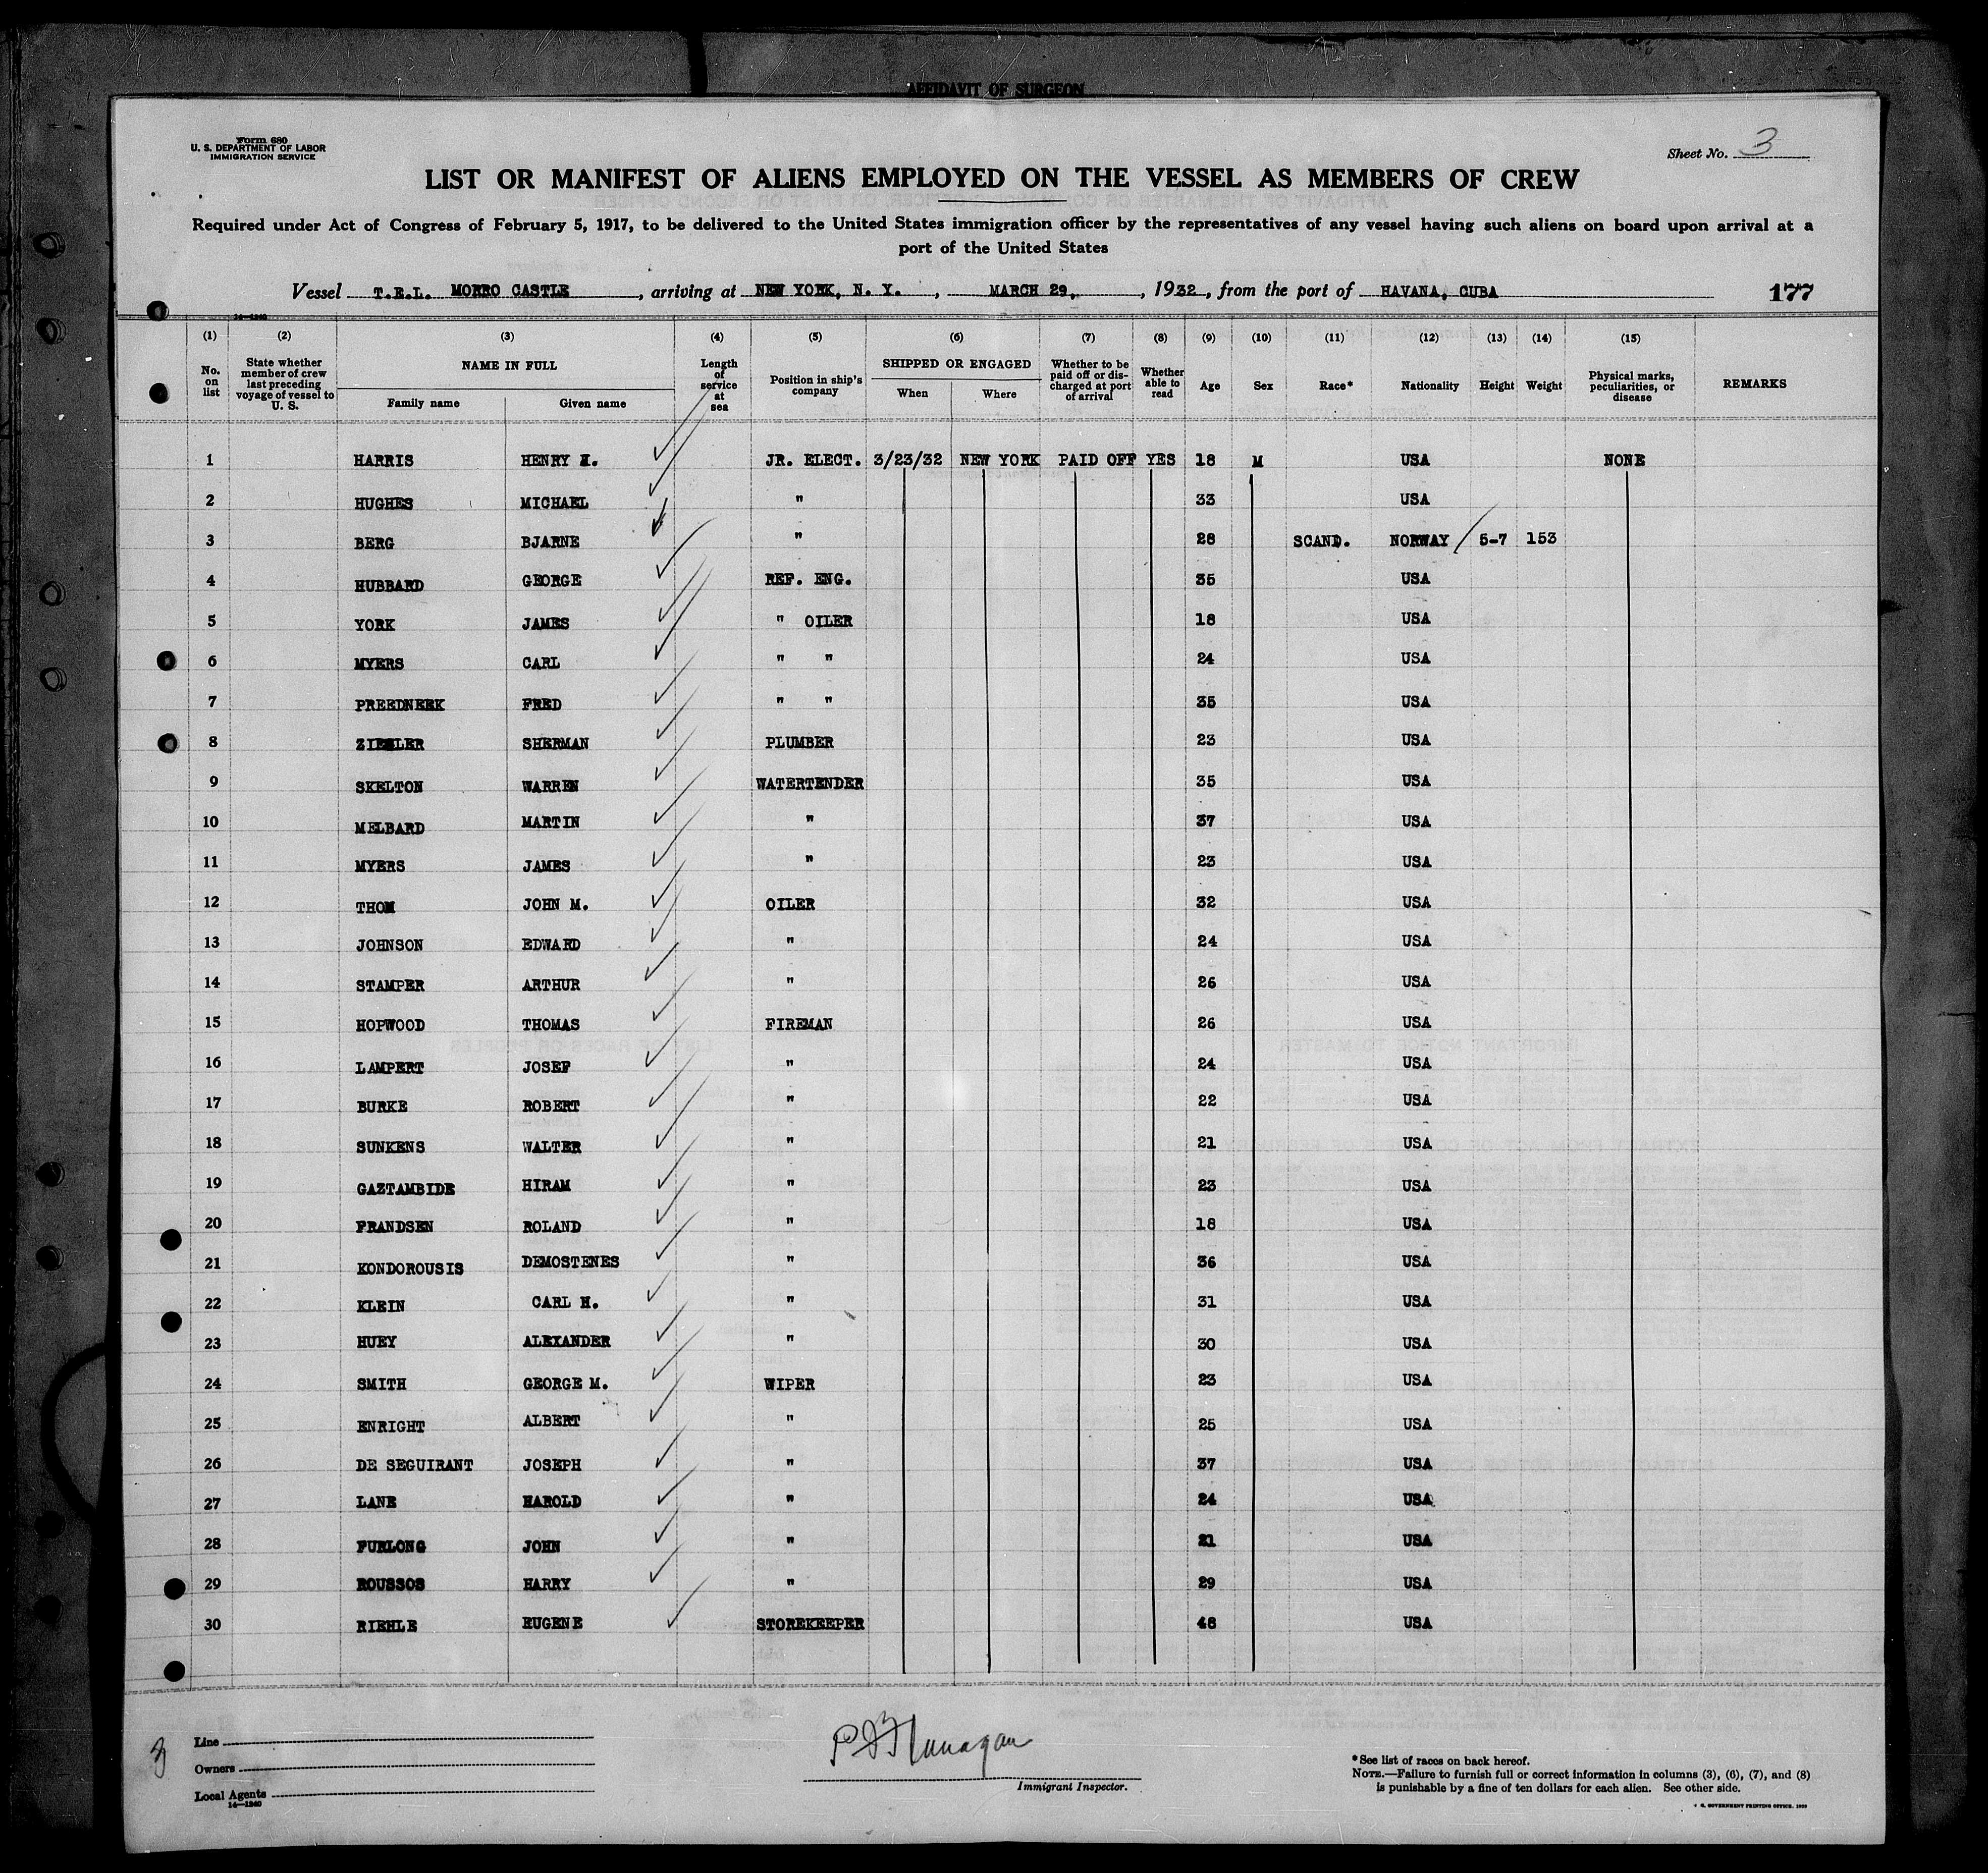 AFFIDAVIT OF SURGEON
Form 680
U. S. DEPARTMENT OF LABOR
IMMIGRATION SERVICE
Sheet No. 3
LIST OR MANIFEST OF ALIENS EMPLOYED ON THE VESSEL AS MEMBERS OF CREW
Required under Act of Congress of February 5, 1917, to be delivered to the United States immigration officer by the representatives of any vessel having such aliens on board upon arrival at a
port of the United States
Vessel T.E.L. MORRO CASTLE, arriving at NEW YORK, N. Y., MARCH 29, 1932, from the port of HAVANA, CUBA 177
14—1240
(1) (2) (3) (4) (5) (6) (7) (8) (9) (10) (11) (12) (13) (14) (15)
No. on list State whether member of crew last preceding voyage of vessel to U. S. NAME IN FULL Family name Given name Length of service at sea Position in ship's company SHIPPED OR ENGAGED When Where Whether to be paid off or discharged at port of arrival Whether able to read Age Sex Race* Nationality Height Weight Physical marks, peculiarities, or disease REMARKS
1 HARRIS HENRY H. JR. ELECT. 3/23/32 NEW YORK PAID OFF YES 18 M USA NONE
2 HUGHES MICHAEL " 33 USA
3 BERG BJARNE " 28 SCAND. NORWAY 5-7 153
4 HUBBARD GEORGE REF. ENG. 35 USA
5 YORK JAMES " OILER 18 USA
6 MYERS CARL " " 24 USA
7 PREEDNEEK FRED " " 35 USA
8 SHERMAN PLUMBER 23 USA
9 SKELTON WARREN WATERTENDER 35 USA
10 MELBARD MARTIN " 37 USA
11 MYERS JAMES " 23 USA
12 THOM JOHN M. OILER 32 USA
13 JOHNSON EDWARD " 24 USA
14 STAMPER ARTHUR " 26 USA
15 HOPWOOD THOMAS FIREMAN 26 USA
16 LAMPERT JOSEF " 24 USA
17 BURKE ROBERT " 22 USA
18 SUNKENS WALTER " 21 USA
19 GAZTAMBIDE HIRAM " 23 USA
20 FRANDSEN ROLAND " 18 USA
21 KONDOROUSIS DEMOSTENES " 36 USA
22 KLEIN CARL H. " 31 USA
23 HUEY ALEXANDER " 30 USA
24 SMITH GEORGE M. WIPER 23 USA
25 ENRIGHT ALBERT " 25 USA
26 DE SEGUIRANT JOSEPH " 37 USA
27 LANE HAROLD " 24 USA
28 FURLONG JOHN " 21 USA
29 ROUSSOS HARRY " 29 USA
30 RIEHLE EUGENE STOREKEEPER 48 USA
Line
Owners
Local Agents
14—1240
Flanagan
Immigrant Inspector.
*See list of races on back hereof.
NOTE.—Failure to furnish full or correct information in columns (3), (6), (7), and (8)
is punishable by a fine of ten dollars for each alien. See other side.